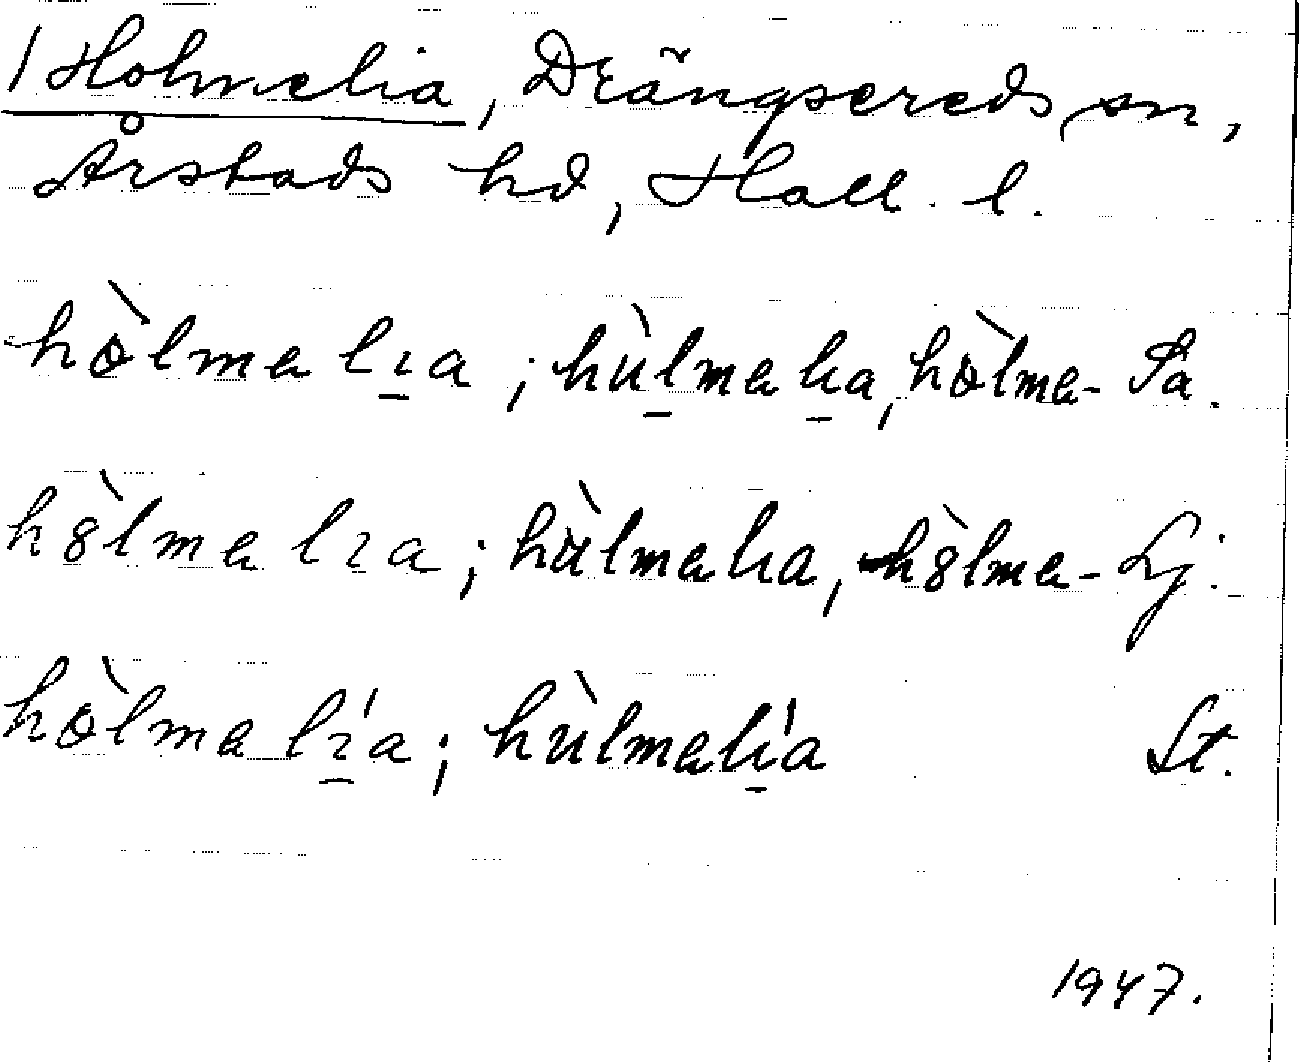 1 Holmelia, Drängsereds sn,
Årstads hd, Hall. l.
hòlmalıa; hùlmalıa, hòlma- Sa.
hòlmalıa; hùlmalıa, hòlma- Lj.
hòlmalía; hùlmalía St.
1947.